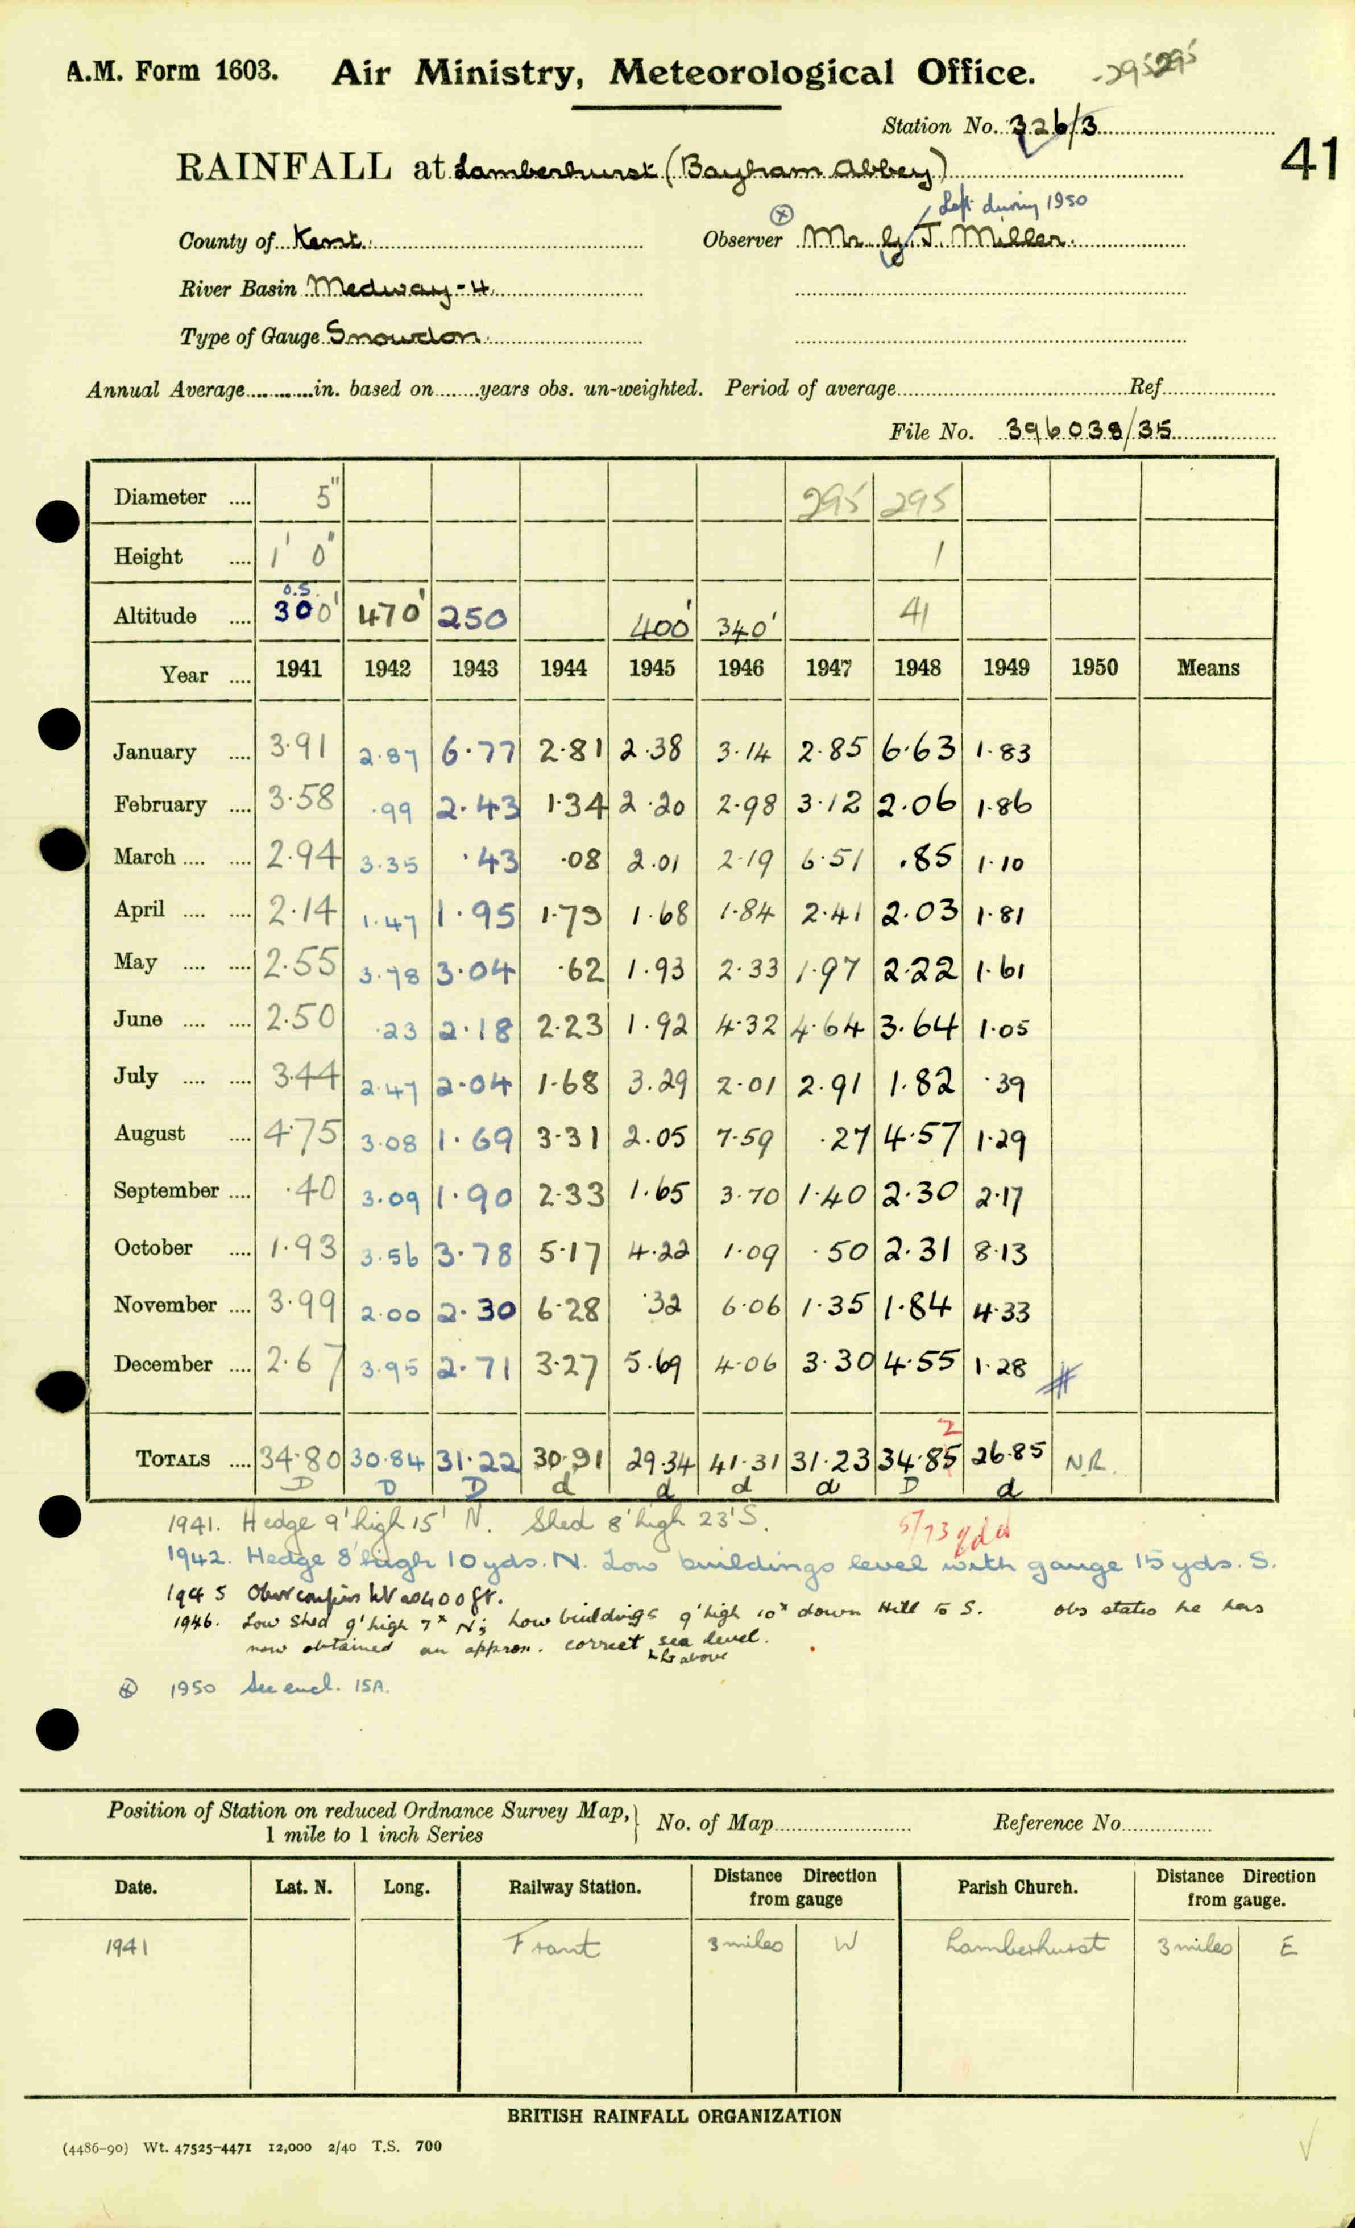 A.M. Form 1603. Air Ministry, Meteorological Office. -295295
Station No. 326/3
41
RAINFALL at Lamberhurst (Bayham Abbey)
Left during 1950
County of Kent. Observer Mr G. J. Miller.
River Basin Medway-4.
Type of Gauge Snowdon.
Annual Average............in. based on........years obs. un-weighted. Period of average Ref.
File No. 396038/35
Diameter .... 5" 295 295
Height .... 1' 0" 1
o.s.
Altitude .... 300' 470' 250 400' 340' 41
Year .... 1941 1942 1943 1944 1945 1946 1947 1948 1949 1950 Means
January .... 3.91 2.87 6.77 2.81 2.38 3.14 2.85 6.63 1.83
February .... 3.58 .99 2.43 1.34 2.20 2.98 3.12 2.06 1.86
March .... .... 2.94 3.35 .43 .08 2.01 2.19 6.51 .85 1.10
April .... .... 2.14 1.47 1.95 1.79 1.68 1.84 2.41 2.03 1.81
May .... .... 2.55 3.78 3.04 .62 1.93 2.33 1.97 2.22 1.61
June .... .... 2.50 .23 2.18 2.23 1.92 4.32 4.64 3.64 1.05
July .... .... 3.44 2.47 2.04 1.68 3.29 2.01 2.91 1.82 .39
August .... 4.75 3.08 1.69 3.31 2.05 7.59 .27 4.57 1.29
September .... .40 3.09 1.90 2.33 1.65 3.70 1.40 2.30 2.17
October .... 1.93 3.56 3.78 5.17 4.22 1.09 .50 2.31 8.13
November .... 3.99 2.00 2.30 6.28 .32 6.06 1.35 1.84 4.33
December .... 2.67 3.95 2.71 3.27 5.69 4.06 3.30 4.55 1.28
2
TOTALS .... 34.80 30.84 31.22 30.91 29.34 41.31 31.23 34.85 26.85 N.R.
D D D d d d d D d
1941. Hedge 9' high 15' N. Shed 8' high 23' S.
1942. Hedge 8' high 10 yds. N. Low buildings level with gauge 15 yds. S.
1945 Obsr confirms ht as 400 ft.
1946. Low shed 9' high 7x N; Low buildings 9' high 10x down Hill to S. obs states he has
now obtained an approx. correct sea level.
ht above
1950 See encl. 15A.
Position of Station on reduced Ordnance Survey Map,
1 mile to 1 inch Series
No. of Map Reference No.
Date. Lat. N. Long. Railway Station. Distance Direction from gauge Parish Church. Distance Direction from gauge.
1941 Frant 3 miles W Lamberhurst 3 miles E
BRITISH RAINFALL ORGANIZATION
(4486-90) Wt. 47525-4471 12,000 2/40 T.S. 700